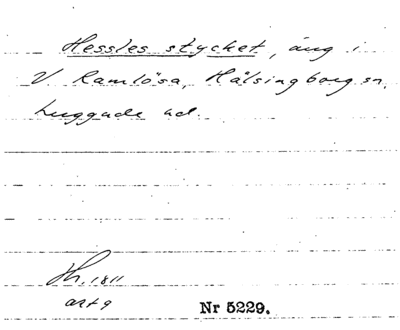 Hessles stycket, äng i
V Ramlösa, Hälsingborg sn,
Luggude hd.
Th. 1811
art 9
Nr 5229.